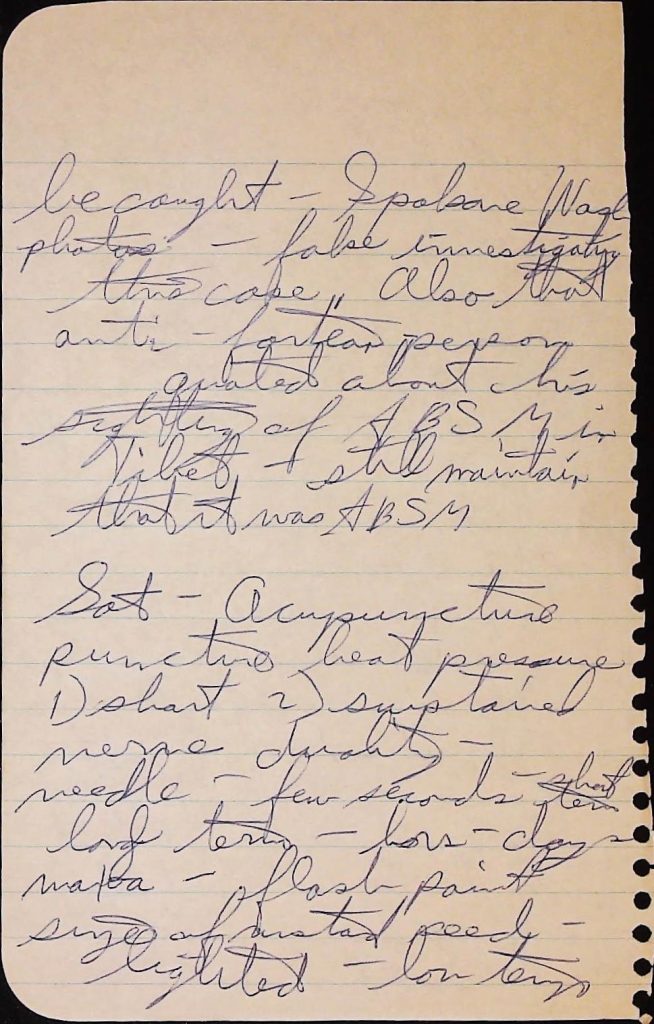 be caught - Spokane Wash
photos - false investigating
this case. Also that
anti-fortean person
quoted about his
sighting of ABSM in
Tibet - still maintain
that it was ABSM
Sat - Acupuncture
puncture heat pressure
1) short 2) sustained
nerve duality -
needle - few seconds - short term
long term - hors - days
moxa - flash point
size of mustad seed -
lighted - low temp